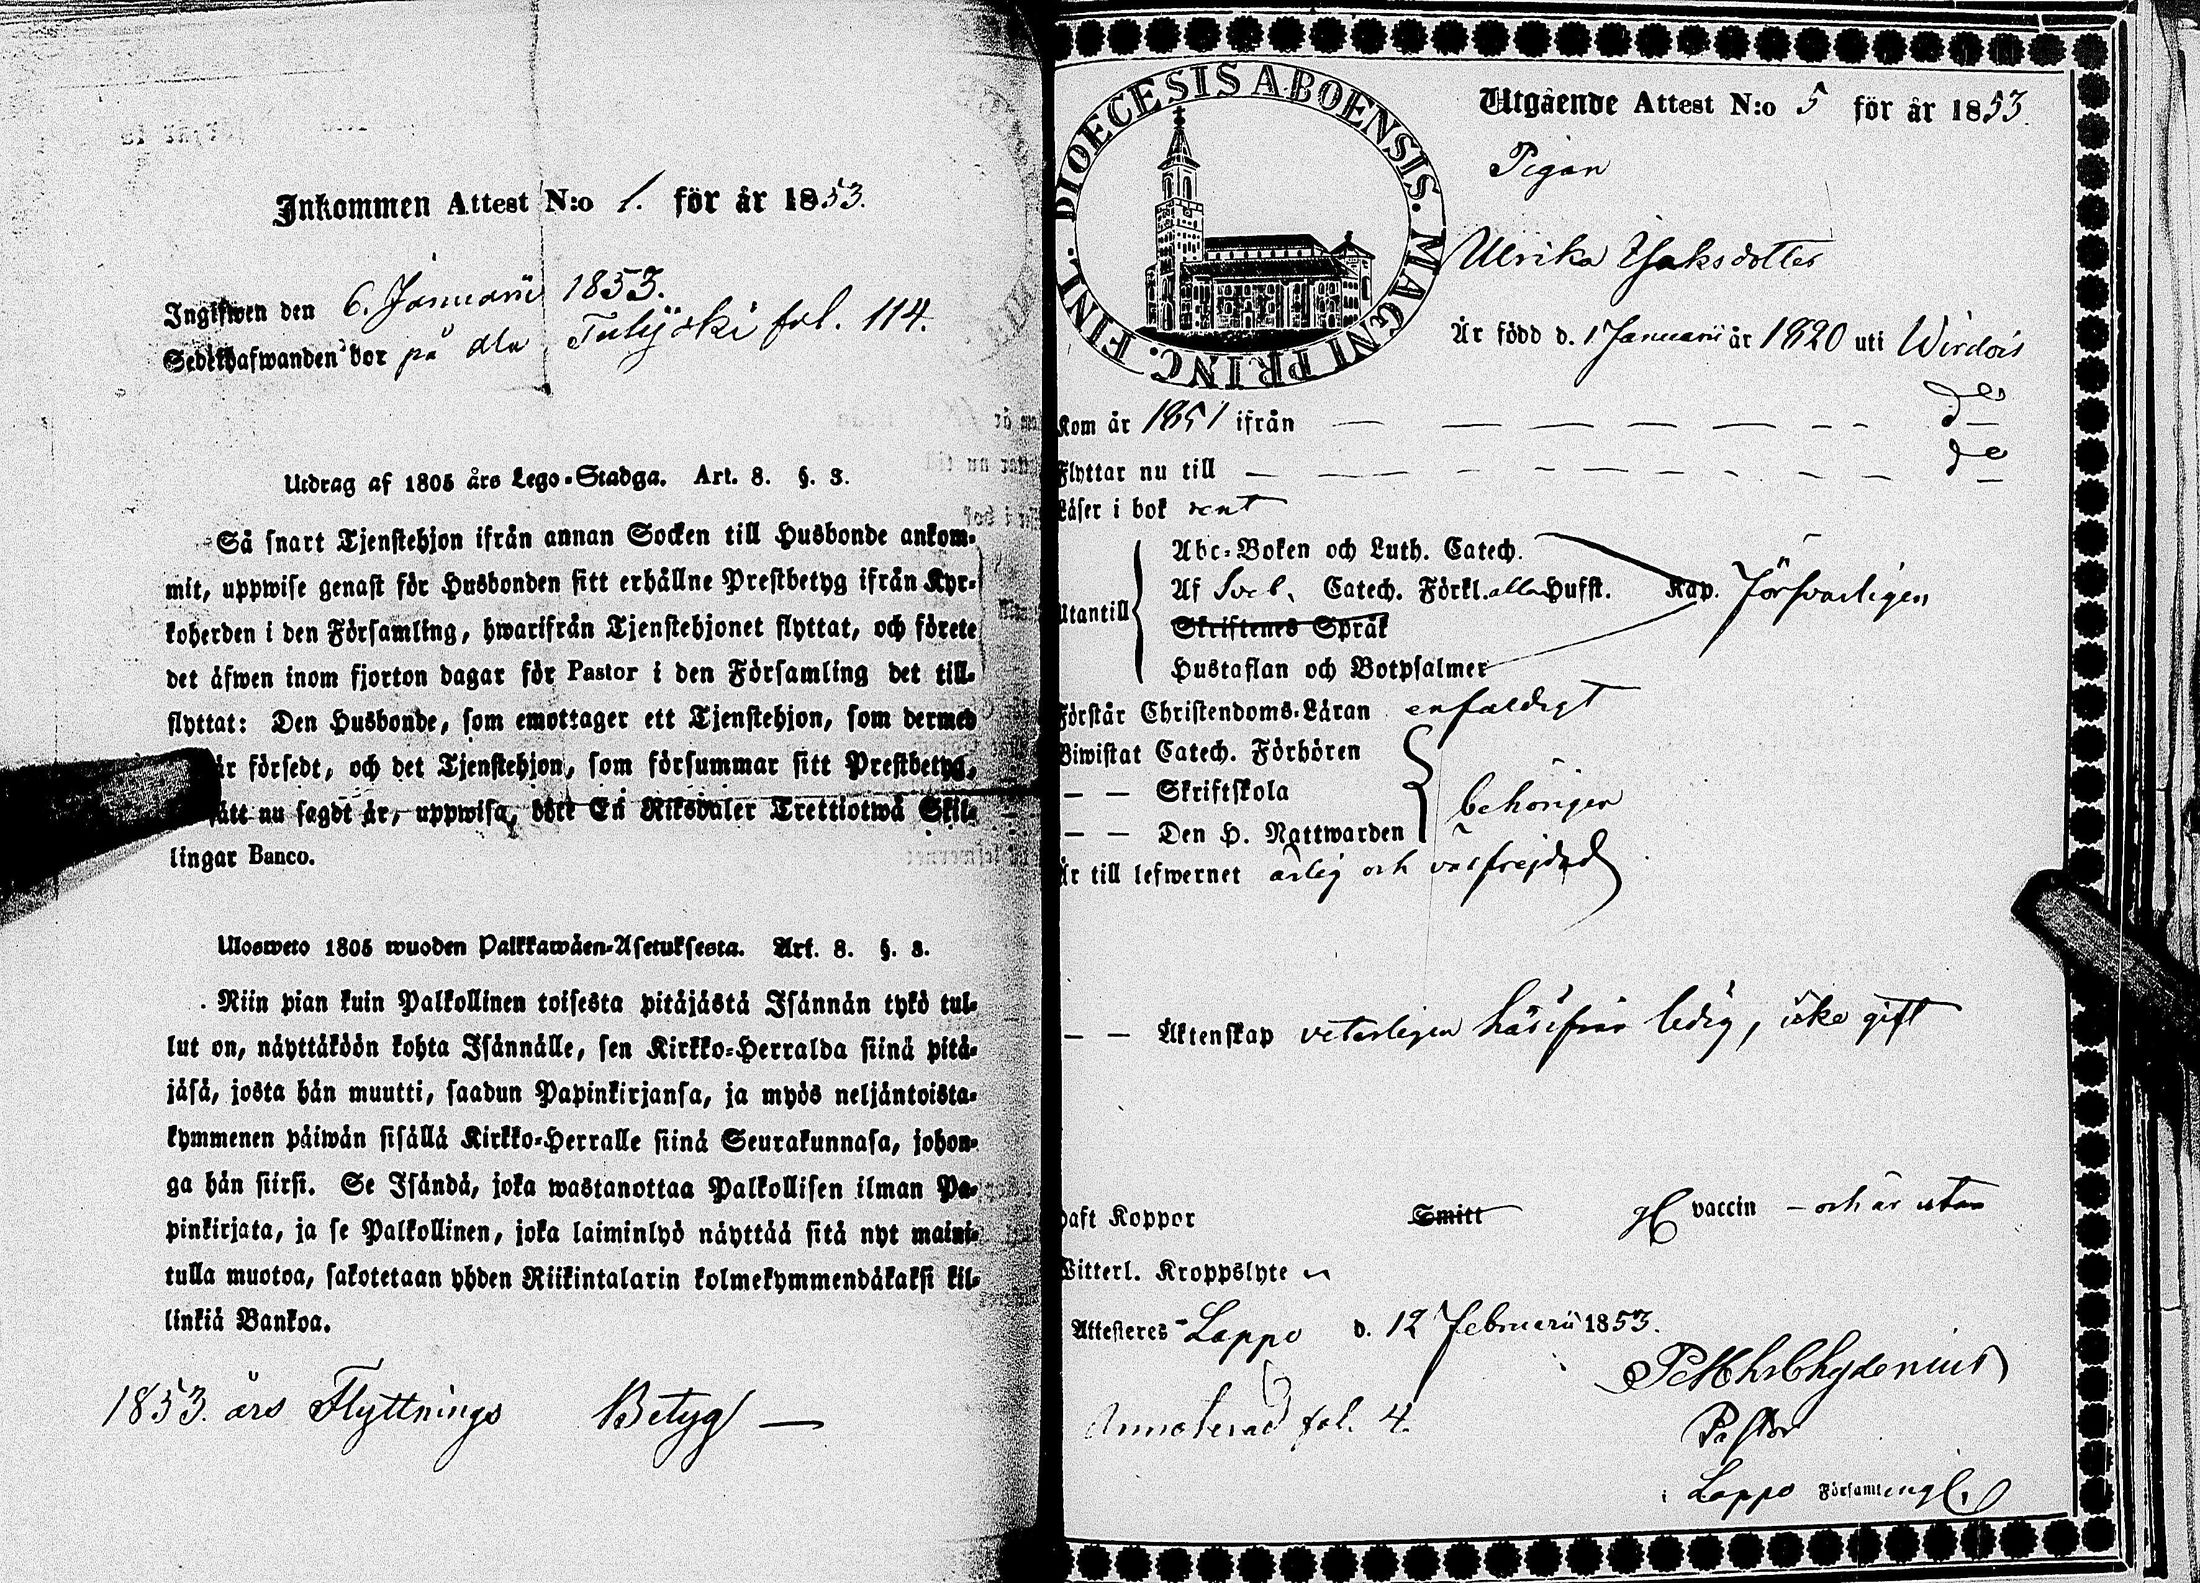 Inkommen Attest N:o 1. för år 1853.
Ingifwen den 6. Januarii 1853.
Sedelhafwanden bor på fol. 114.
Utdrag af 1805 års Lego-Stadga. Art. 8. §. 3.
Så snart Tjenstehjon ifrån annan Socken till Husbonde ankom-
mit, uppwise genast för Husbonden sitt erhållne Prestbetyg ifrån Kyr-
koherden i den Församling, hwarifrån Tjenstehjonet flyttat, och förete
det äfwen inom fjorton dagar för Pastor i den Församling det till-
flyttat: Den Husbonde, som emottager ett Tjenstehjon, som dermed
är försedt, och det Tjenstehjon, som försummar sitt Prestbetyg,
sätt nu sagdt är, uppwisa, böte En Riksdaler Trettiotwå Skil-
lingar Banco.
Ulosweto 1805 wuoden Palkkawäen-Asetuksesta. Art. 8. §. 3.
Niin pian kuin Palkollinen toisesta pitäjästä Isännän tykö tul-
lut on, näyttäköön kohta Isännälle, sen Kirkko-Herralda siinä pitä-
jäsä, josta hän muutti, saadun Papinkirjansa, ja myös neljäntoista-
kymmenen päiwän sisällä Kirkko-Herralle siinä Seurakunnasa, johon-
ga hän siirsi. Se Isändä, joka wastanottaa Palkollisen ilman Pa-
pinkirjata, ja se Palkollinen, joka laiminlyö näyttää sitä nyt maini-
tulla muotoa, sakotetaan yhden Riikintalarin kolmekymmendäkaksi kil-
linkiä Bankoa.
1853. års Flyttnings Betyg —
DIOECESIS ABOENSIS. MAGNI PRINC. FINL.
Utgående Attest N:o 5 för år 1853.
Pigan
Ulrika Isaksdotter
Är född d. 1 Januarii år 1820 uti Wirdois
Kom år 1851 ifrån — — — — — — d:o
Flyttar nu till — — — — — — — d:o
Läser i bok rent
Utantill
Abc-Boken och Luth. Catech.
Af Sveb. Catech. Förkl. alla Hufst. Kap. försvarligen
Skriftenes Språk
Hustaflan och Botpsalmer
Förstår Christendoms-Läran enfaldigt
Biwistat Catech. Förhören
— — Skriftskola behörigen
— — Den H. Nattwarden
Är till lefwernet ärlig och välfrejdad
— — Äktenskap veterligen härifrån ledig, icke gift
Haft Koppor Smitt vaccin — och är utan
Witterl. Kroppslyte
Attesteres Lappo d. 12 Februarii 1853.
Chydenius
Annoterad fol. 4.
Pastor
i Lappo Församling